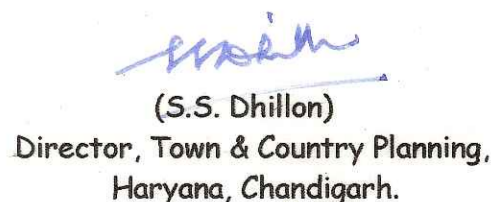 (S.S. Dhillon)
Director, Town & Country Planning,
Haryana, Chandigarh.